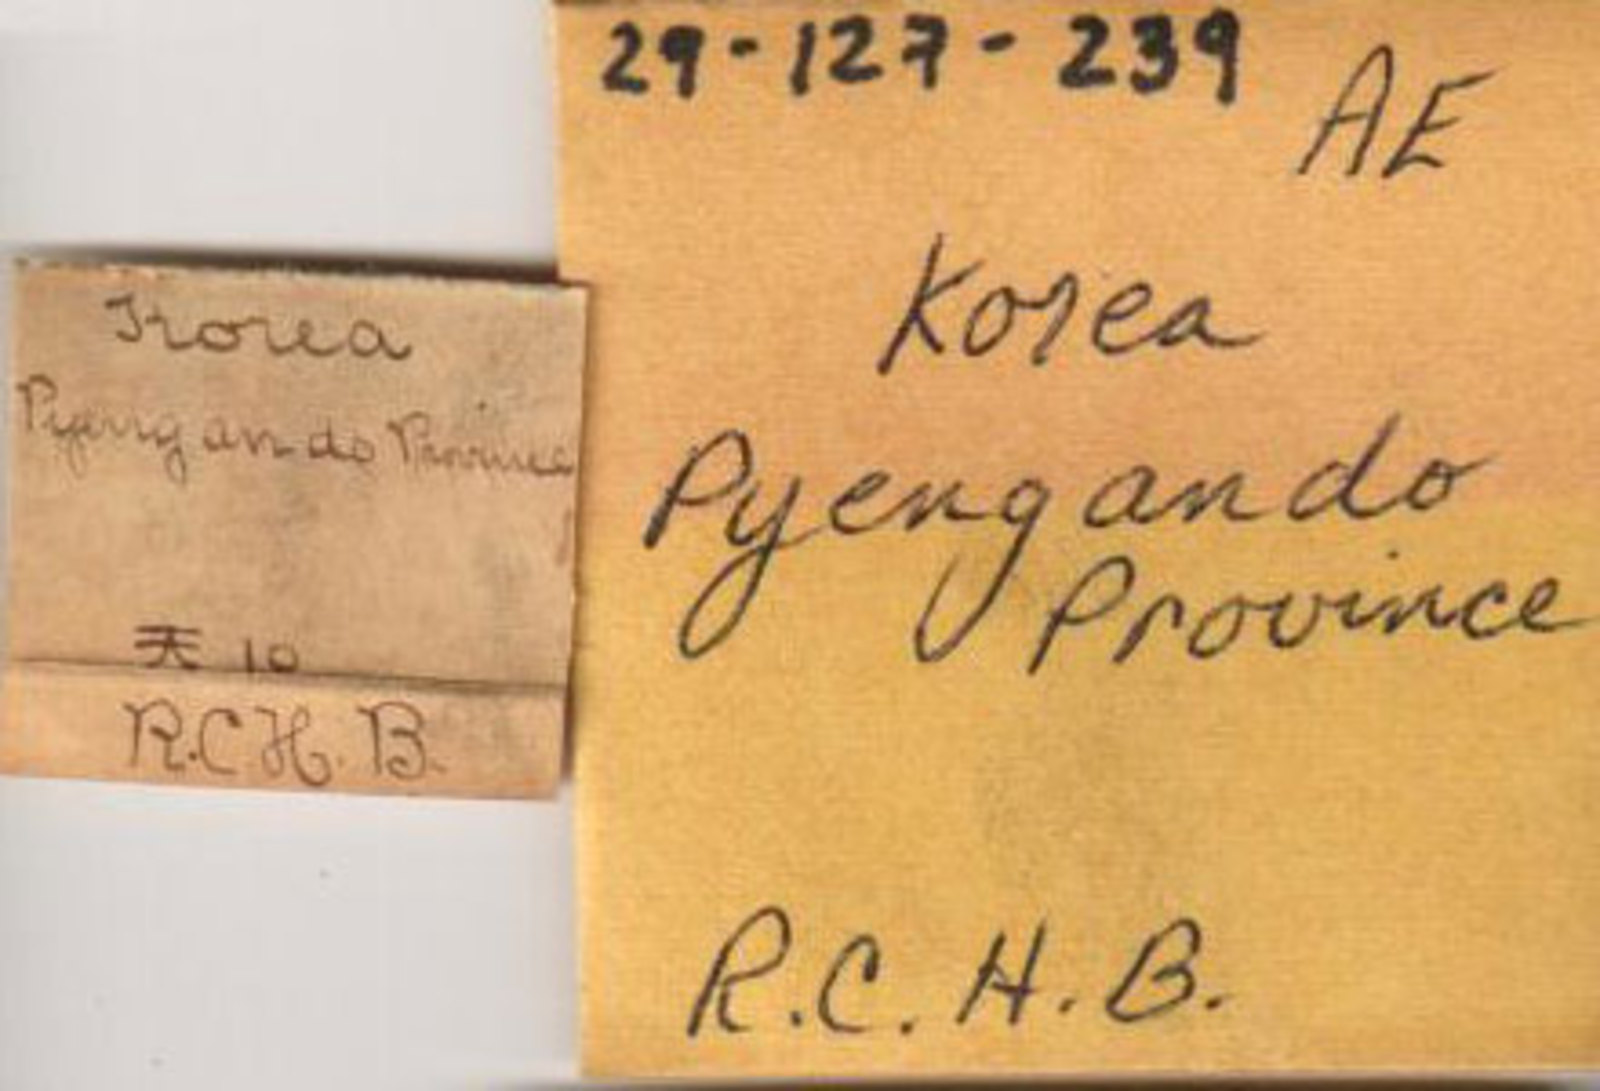 Korea
Pyengando Province
天 10
R.C.H.B.
29-127-239
AE
Korea
Pyengando
Province
R.C.H.B.